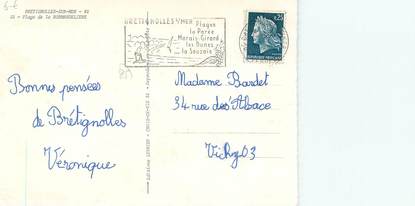 BRETIGNOLLES-SUR-MER - 85
Plage de la NORMANDELIERE
BRETIGNOLLES s/ MER
Plages
la Parée
Marais Girard
les Dunes
la Sauzaie
0,25
Bonnes pensées
de Brétignolles
Véronique
Madame Bardet
34 rue des Alsace
Vichy 03